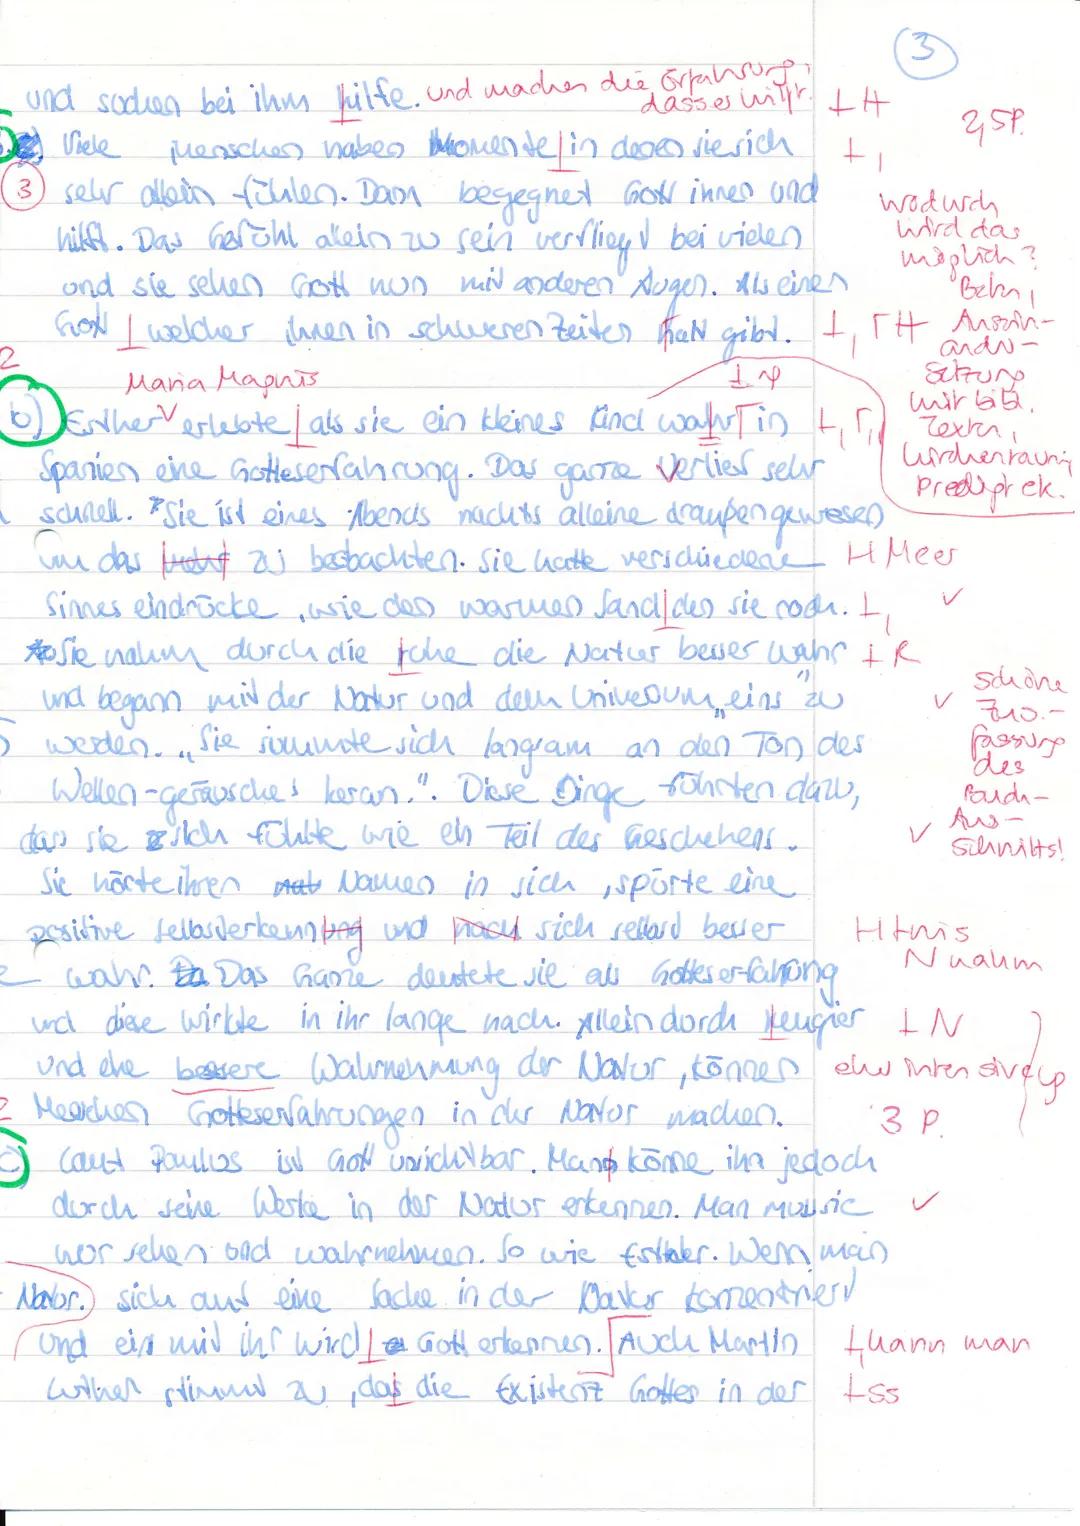 3
und suchen bei ihm hilfe. und machen die Erfahrung, dass er hilft. ⊥H
2,5P.
Viele Menschen haben Momente in denen sie sich ⊥,
3 sehr allein fühlen. Dann begegnet Gott ihnen und
hilft. Das Gefühl allein zu sein verfliegt bei vielen
und sie sehen Gott nun mit anderen Augen. Als einen
Gott welcher ihnen in schweren Zeiten halt gibt. ⊥, ΓH
wodurch
wird das
möglich?
Beten,
Ausein-
ander-
setzung
mit bibl.
Texten,
Kirchenraum,
Predigt ek.
Maria Magnis
b) Esther erlebte als sie ein kleines Kind wahr in
Spanien eine Gotteserfahrung. Das ganze Verlief sehr
schnell. Sie ist eines Abends nachts alleine draußen gewesen
um das zu beobachten. Sie hatte verschiedene H Meer
Sinneseindrücke, wie den warmen Sand den sie roch. ⊥, ✓
Sie nahm durch die ruhe die Natur besser wahr ⊥ R
und begann mit der Natur und dem Univesum „eins" zu ✓
werden. „Sie summte sich langsam an den Ton des
Wellen-geräusche's heran.". Diese Dinge führten dazu,
dass sie sich fühlte wie ein Teil des Geschehens. ✓
schöne
Zus.-
fassung
des
Buch-
Aus-
schnitts!
Sie hörte ihren Namen in sich, spürte eine
positive selbsterkennung und nach sich selbst besser H tnis
wahr. Das Ganze deutete sie als Gotteserfahrung N nahm
und diese wirkte in ihr lange nach. Allein durch neugier ⊥ N
und ehe bessere Wahrnehmung der Natur, können eher intensive
Menschen Gotteserfahrungen in der Natur machen. 3 P.
c) Laut Paulus ist Gott unsichtbar. Man könne ihn jedoch
durch seine Werke in der Natur erkennen. Man muss sie ✓
nur sehen und wahrnehmen. So wie Esther. Wenn man
Natur. sich auf eine Sache in der Natur konzentriert
und eins mit ihr wird Gott erkennen. Auch Martin ⊥, kann man
Luther stimmt zu, das die Existenz Gottes in der ⊥ss